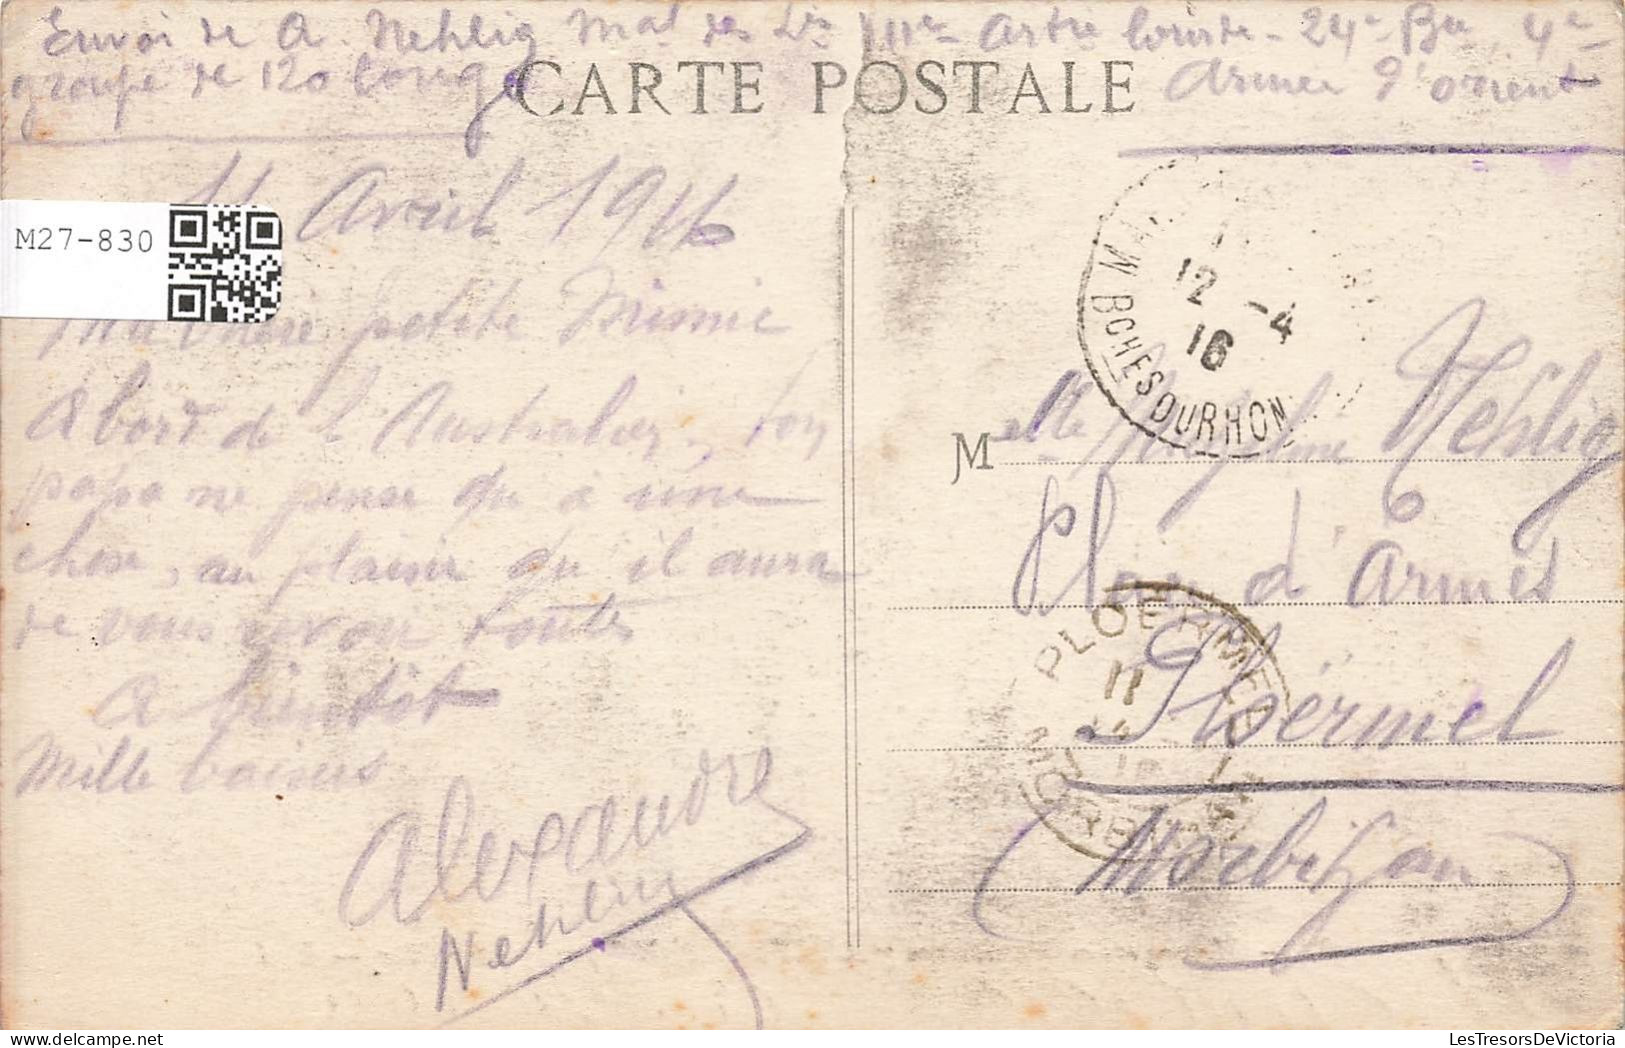 Envoi de A. Nehlig Mal des Lis Artie lourde - 24e Bie, 4e
groupe de 120 longs
Armée d'orient
CARTE POSTALE
11 Avril 1916
M27-830
petite Mimie
A bord de l'Australien, ton
papa ne pense qu'à une
chose, au plaisir qu'il aura
de vous revoir toutes
A bientôt
Mille baisers
Alexandre
Nehlig
12 -4
16
BCHES DU RHON
M elle Nehlig
Place d'Armes
Ploërmel
Morbihan
PLOERMEL
11
MORBIHAN
LesTresorsDeVictoria